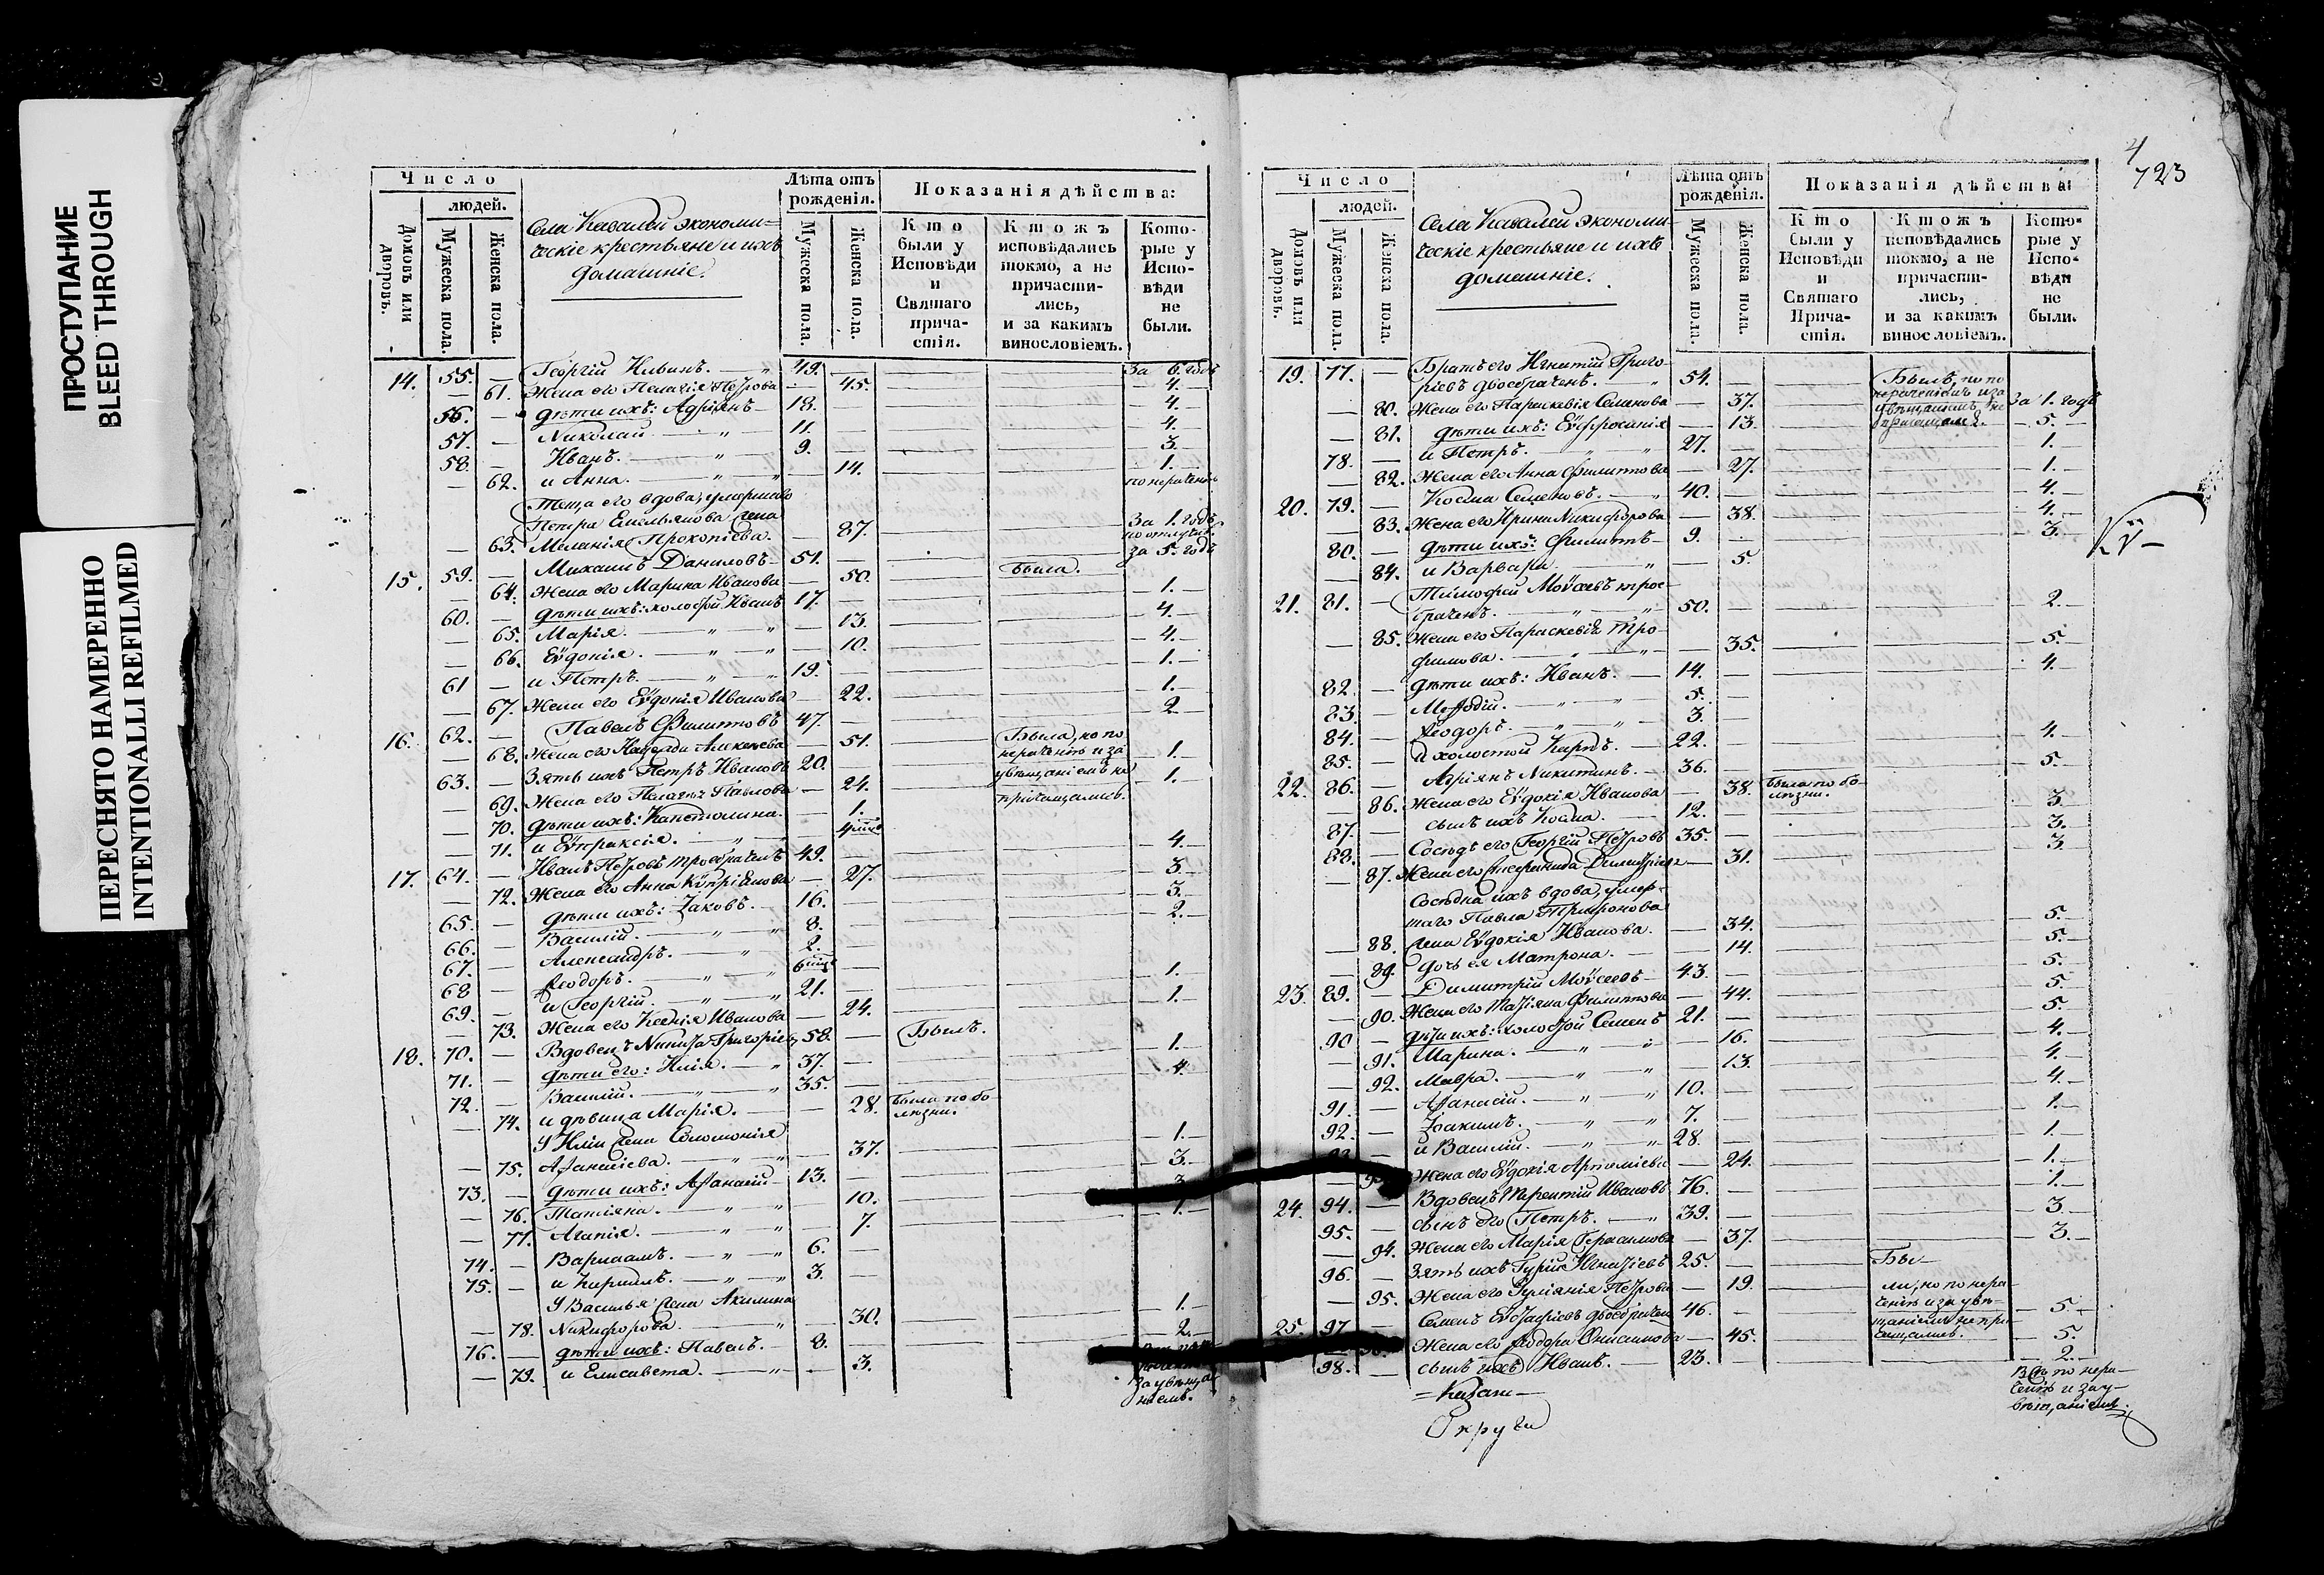 ПРОСТУПАНИЕ
BLEED THROUGH
ПЕРЕСНЯТО НАМЕРЕННО
INTENTIONALLI REFILMED
Число
людей.
Домовъ или дворовъ.
Мужеска пола.
Женска пола.
Села Кавалей экономи=
ческіе крестьяне и ихъ
домашніе.
Лѣта отъ рожденія.
Мужеска пола.
Женска пола.
Показанія дѣйства:
Кто были у Исповѣди и Святаго прича-стія.
Ктожъ исповѣдались токмо, а не причасти-лись, и за какимъ винословіемъ.
Кото-рые у Испо-вѣди не были.
14. 55. — Георгій Ильинъ. 49. За 6. годъ
— 61. Жена его Пелагія Петрова — 45. 4.
56. — дѣти ихъ: Адріянъ 18. 4.
57. — Николай 11. 4.
58. — Иванъ. 9. 3.
— 62. и Анна. — 14. 1.
Теща его вдова, умершаго
Петра Емельянова жена
— 63. Меланія Прокопіева. — 87. За 1. годъ
15. 59. — Михаилъ Даниловъ 51. — за 5. годъ
— 64. Жена его Марина Иванова — 50. была.
60. — дѣти ихъ: холостой Иванъ 17. 1.
— 65. Марія. — 13. 4.
— 66. Евдокія. — 10. 4.
61 — и Петръ. 19. 1.
— 67. Жена его Евдокія Иванова — 22. 1.
16. 62. — Павелъ Филиповъ 47. 2
— 68. Жена его Алексѣева — 51. Была, но по
63. — Зять ихъ Петръ Ивановъ 20. 1.
— 69. Жена его Пелагія Павлова — 24. 1.
— 70. дѣти ихъ: Капетолина. — 1.
— 71. и Евпраксія.
17. 64. — Иванъ Петровъ троебраченъ 49. 4.
— 72. Жена его Анна Кипріянова — 27. 3.
65. — дѣти ихъ: Іаковъ. 16. 3.
66. — Василій. 8. 2.
67. — Александръ. 2.
68 — Ѳеодоръ.
69. — и Георгій. 21. 1.
— 73. Жена его Ксенія Иванова — 24. 1.
18. 70. — Вдовецъ Никита Григорьевъ 58. — Былъ.
71. — дѣти его: Илія. 37. 1.
72. — Василій. 35. 4.
— 74. и дѣвица Марія. — 28. была по бо-
лѣзни.
У Иліи жена Соломонія
— 75. Аѳанасіева. — 37. 1.
73. — дѣти ихъ: Аѳанасій 13. 3.
— 76. Татіяна. — 10.
— 77. Агапія. — 7. 1.
74. — Варлаамъ. 6.
75. — и Кирилъ. 3.
У Василья жена Акилина
— 78. Никифорова. — 30. 1.
76. — дѣти ихъ: Павелъ. 8. 2.
— 79. и Елисавета. — 3.
4
723
Число
людей.
Домовъ или дворовъ.
Мужеска пола.
Женска пола.
Села Кавалей экономи-
ческіе крестьяне и ихъ
домашніе.
Лѣта отъ рожденія.
Мужеска пола.
Женска пола.
Показанія дѣйства:
Кто были у Исповѣди и Святаго Прича-стія.
Ктожъ исповѣдались токмо, а не причасти-лись, и за какимъ винословіемъ.
Кото-рые у Испо-вѣди не были.
19. 77. — Братъ его Игнатій Григо-
ріевъ двоебраченъ. 54. — Былъ, но по
— 80. Жена его Параскевія Семенова — 37. За 1. годъ
— 81. дѣти ихъ: Евфросинія — 13. 5.
78. — и Петръ. 27. 1.
— 82. Жена его Анна Филиппова — 27. 1.
20. 79. — Косма Семеновъ. 40. 4.
— 83. Жена его Ирина Никифорова — 38. 4.
80. — дѣти ихъ: Филиппъ 9. 3.
— 84. и Варвара — 5.
21. 81. — Тимофей Моисеевъ трое-
браченъ. 50. 2.
— 85. Жена его Параскевія Тро-
фимова. — 35. 5.
82. — дѣти ихъ: Иванъ. 14. 4.
83. — Меѳодій. 5.
84. — Ѳеодоръ. 3.
85. — и холостой Карпъ. 22. 4.
22. 86. — Адріянъ Никитинъ. 36. 5.
— 86. Жена его Евдокія Иванова — 38. была по бо-
лѣзни.
87. — сынъ ихъ Косма. 12. 3.
88. — Сосѣдъ его Георгій Петровъ 35. 3.
— 87. Жена его Димитріева — 31. 3.
Сосѣдка ихъ вдова, умер-
шаго Павла Трифонова
— 88. жена Евдокія Иванова. — 34. 5.
— 89. дочь ея Матрона. — 14. 5.
23. 89. — Димитрій Моисеевъ 43. 5.
— 90. Жена его Татіяна Филиппова — 44. 5.
90 — дѣти ихъ: холостой Семенъ 21. 5.
— 91. Марина. — 16. 4.
— 92. Мавра. — 13. 4.
91. — Аѳанасій. 10. 4.
92. — Іоакимъ. 7. 1.
и Василій. 28. 1.
Жена его Евдокія Артеміева — 24. 1.
24. 94. — Вдовецъ Ивановъ 76. 1.
95. — сынъ его Петръ. 39. 3.
— 94. Жена его Марія Герасимова — 37. 3.
96. — Зять ихъ Гурій Игнатіевъ 25. — Бы-
— 95. Жена его Іуліанія Петрова — 19. ли, но по нера-
25. 97 Семенъ двоебраченъ 46. 5.
Жена его Ѳеодора Онисимова — 45. 5.
98. — сынъ ихъ Иванъ. 23. 2.
Всѣ по нера-
=Казан—
Округи